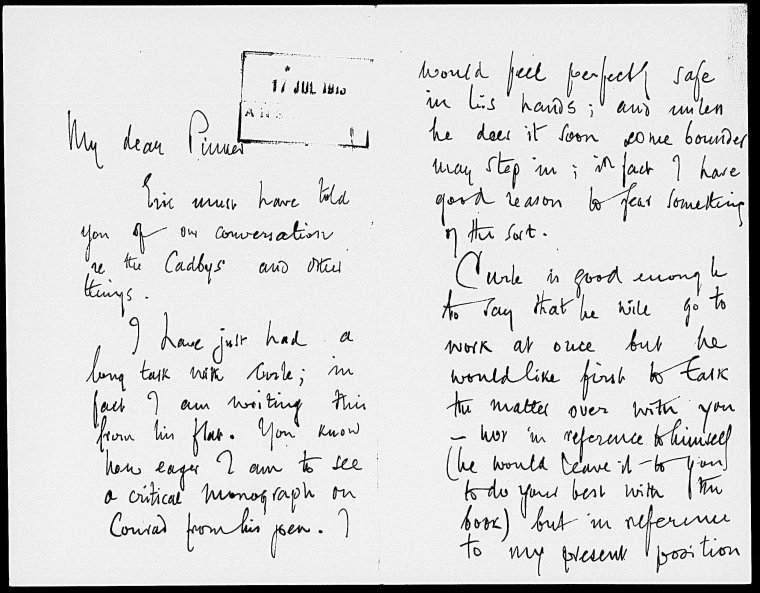 17 JUL 1913
ANS
My dear Pinker
Eric must have told
you of our conversation
re the Cadbys and other
things.
I have just had a
long talk with Curle; in
fact I am writing this
from his flat. You know
how eager I am to see
a critical monograph on
Conrad from his pen. I
would feel perfectly safe
in his hands; and unless
he does it soon some bounder
may step in; in fact I have
good reason to fear something
of the sort.
Curle is good enough
to say that he will go to
work at once but he
would like first to talk
the matter over with you
— not in reference to himself
(he would leave it to you
to do your best with the
book) but in reference
to my present position